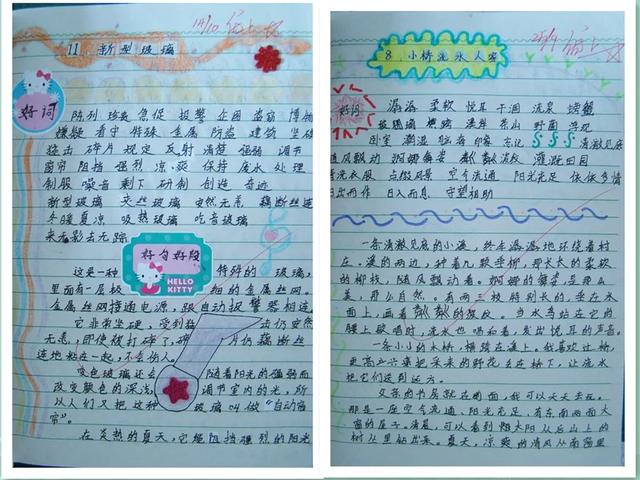 14/10
11、新型玻璃
好词
陈列 珍贵 急促 报警 企图 盗窃 博物
嫌疑 看守 特殊 金属 防盗 建筑 坚硬
猛击 碎片 规定 反射 清楚 强弱 调节
窗帘 阻挡 强烈 凉爽 保持 废水 处理
制服 噪音 剩下 研制 创造 奇迹
新型玻璃 夹丝玻璃 安然无恙 藕断丝连
冬暖夏凉 吸热玻璃 吃音玻璃
来无影去无踪
好句好段
HELLO KITTY
这是一种 特殊的 玻璃,
里面有一层极 细的金属网。
金属丝网接通电源,跟自动报警器相连。
它非常坚硬,受到猛 击仍安然
无恙,即使被打碎了,碎片仍藕断丝
连地粘在一起,不会伤人。
变色玻璃还会 随着阳光的强弱而
改变颜色的深浅, 调节室内的光,所
以人们又把这种 玻璃叫做“自动窗
帘”。
在炎热的夏天,它能阻挡强烈的阳光
8、小桥流水人家
好词
潺潺 柔软 悦耳 干涸 流泉 螃蟹
玻璃窗 燃烧 溪岸 茶山 野菌
卧室 潮湿 印象 忘记 清澈见底
随风飘动 婀娜多姿 粼粼波纹 灌溉田园
洗衣服 点缀风景 空气流通 阳光充足 依依多情
日出而作 日入而息 守望相助
一条清澈见底的小溪,终年潺潺地环绕着村
庄。溪的两边,种着几颗垂柳,那长长的柔软
的柳枝,随风飘动着。婀娜的舞姿,是那么
美,那么自然。有两三枝特别长的,垂在水
面上,画着粼粼的波纹。当水鸟站在它的
腰上歌唱时,流水也唱和着,发出悦耳的声音。
一条小小的木桥,横跨在溪上。我喜欢过桥,
更高兴六集把采来的野花丢在桥下,让流水
把它们送到远方。
父亲的书屋就在前面,我可以天天去玩。
那是一座空气流通,阳光充足,有东南两面大
窗的屋子。清晨,可以看到太阳从后山上的
树丛里钻出来。夏天,凉爽的清风从南窗里